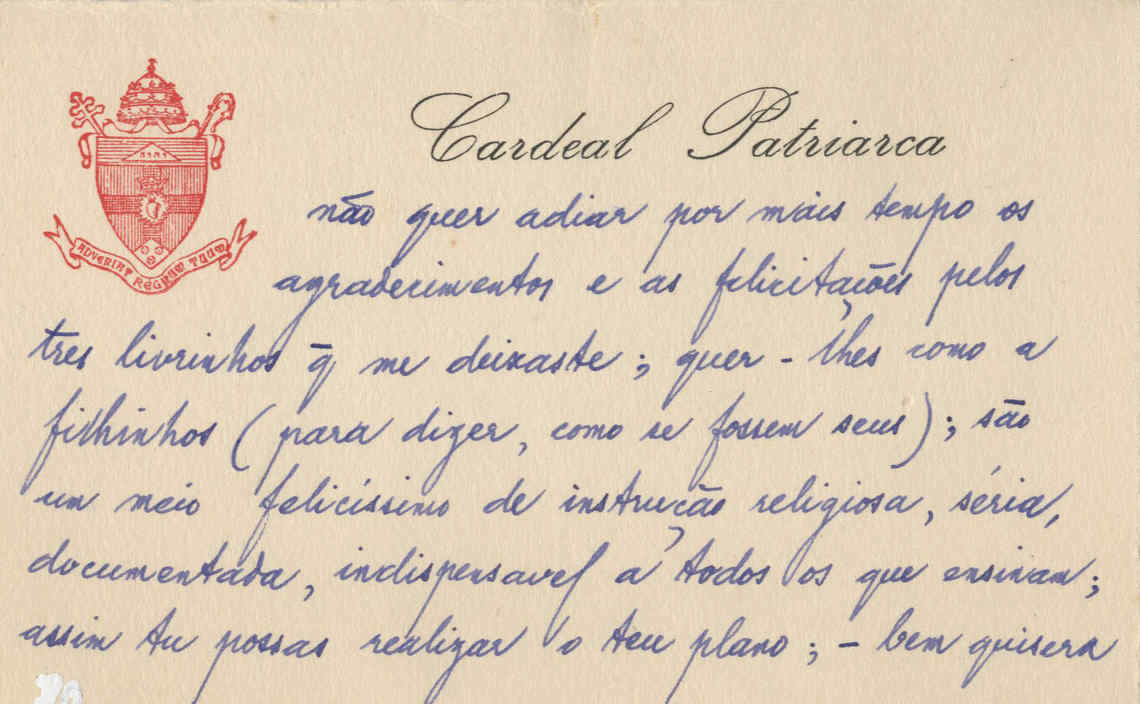 Cardeal Patriarca
ADVENIAT REGNUM TUUM
não quer adiar por mais tempo os
agradecimentos e as felicitações pelos
tres livrinhos q̄ me deixaste; quer-lhes como a
filhinhos (para dizer, como se fossem seus); são
um meio felicíssimo de instrução religiosa, séria,
documentada, indispensavel a todos os que ensinam;
assim tu possas realizar o teu plano; - bem quisera